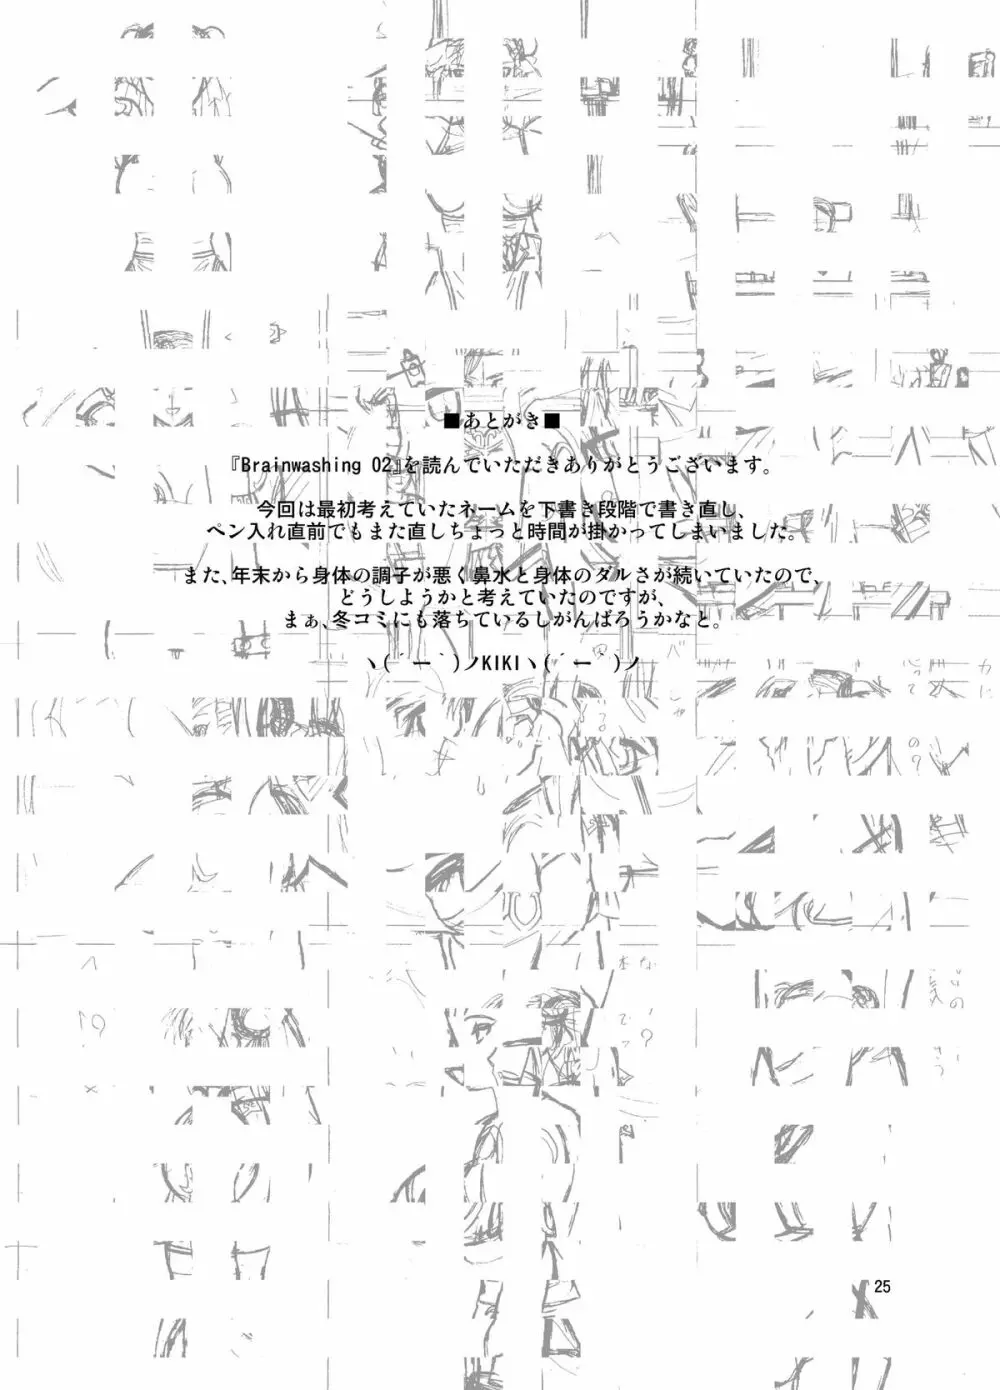 ■あとがき■
『Brainwashing 02』を読んでいただきありがとうございます。
今回は最初考えていたネームを下書き段階で書き直し、
ペン入れ直前でもまた直しちょっと時間が掛かってしまいました。
また、年末から身体の調子が悪く鼻水と身体のダルさが続いていたので、
どうしようかと考えていたのですが、
まぁ、冬コミにも落ちているしがんばろうかなと。
ヽ(´ー｀)ノKIKIヽ(´ー｀)ノ
25